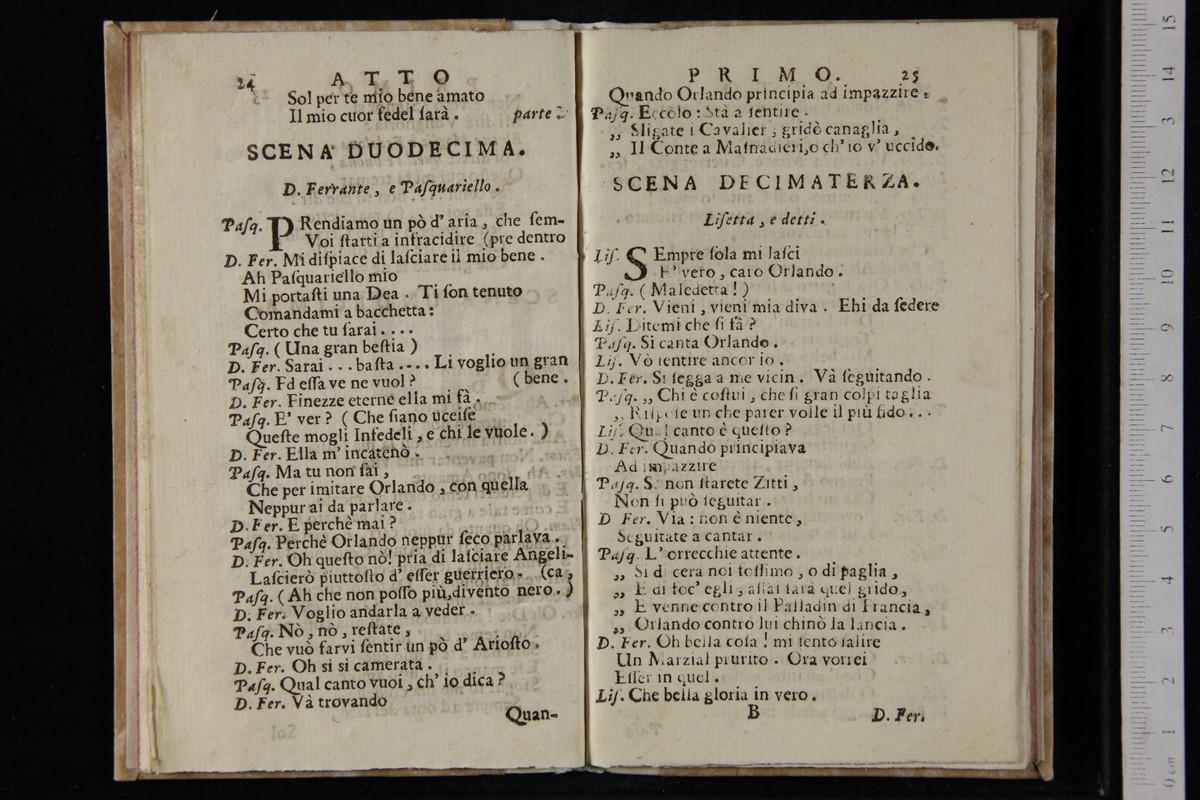 24 ATTO
Sol per te mio bene amato
Il mio cuor fedel ſarà. parte
SCENA DUODECIMA.
D. Ferrante, e Paſquariello.
Paſq. PRendiamo un pò d'aria, che ſem-
Voi ſtarti a infracidire (pre dentro
D. Fer. Mi diſpiace di laſciare il mio bene.
Ah Paſquariello mio
Mi portaſti una Dea. Ti ſon tenuto
Comandami a bacchetta:
Certo che tu ſarai....
Paſq. (Una gran beſtia)
D. Fer. Sarai... baſta.... Li voglio un gran
Paſq. Ed eſſa ve ne vuol? (bene.
D. Fer. Finezze eterne ella mi fà.
Paſq. E' ver? (Che ſiano uceiſe
Queſte mogli Infedeli, e chi le vuole.)
D. Fer. Ella m'incatenò.
Paſq. Ma tu non ſai,
Che per imitare Orlando, con quella
Neppur ai da parlare.
D. Fer. E perchè mai?
Paſq. Perchè Orlando neppur ſeco parlava.
D. Fer. Oh queſto nò! pria di laſciare Angeli-
Laſcierò piuttoſto d'eſſer guerriero. (ca,
Paſq. (Ah che non poſſo più, divento nero.)
D. Fer. Voglio andarla a veder.
Paſq. Nò, nò, reſtate,
Che vuò farvi ſentir un pò d'Arioſto.
D. Fer. Oh si si camerata.
Paſq. Qual canto vuoi, ch'io dica?
D. Fer. Và trovando
Quan-
PRIMO. 25
Quando Orlando principia ad impazzire.
Paſq. Eccolo: Stà a ſentire.
„ Sligate i Cavalier, gridò canaglia,
„ Il Conte a Maſnadieri, o ch'io v'uccido.
SCENA DECIMATERZA.
Liſetta, e detti.
Liſ. SEmpre ſola mi laſci
E' vero, caro Orlando.
Paſq. (Maledetta!)
D. Fer. Vieni, vieni mia diva. Ehi da ſedere
Liſ. Ditemi che ſi fà?
Paſq. Si canta Orlando.
Liſ. Vò ſentire ancor io.
D. Fer. Si ſegga a me vicin. Và ſeguitando.
Paſq. „ Chi è coſtui, che ſi gran colpi taglia
„ Riſpoſe un che parer volle il più fido...
Liſ. Qual canto è queſto?
D. Fer. Quando principiava
Ad impazzire
Paſq. Se non ſtarete Zitti,
Non ſi può ſeguitar.
D Fer. Via: non è niente,
Seguitate a cantar.
Paſq. L'orrecchie attente.
„ Si di cera noi foſſimo, o di paglia,
„ E di foc'egli, aſſai ſarà quel grido,
„ E venne contro il Palladin di Francia,
„ Orlando contro lui chinò la lancia.
D. Fer. Oh bella coſa! mi ſento ſalire
Un Marzial prurito. Ora vorrei
Eſſer in quel.
Liſ. Che bella gloria in vero.
B D. Fer.